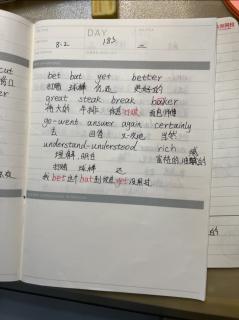 DAY
8.2 185 二
bet bat yet better
打赌 球棒 更好的
great steak break baker
伟大的 牛排 打破 面包师傅
go-went answer again certainly
去 回答 又一次地 当然
understand-understood rich
理解,明白
打赌 球棒 还
我 bet 这个 bat 到现在 yet 没用过
的